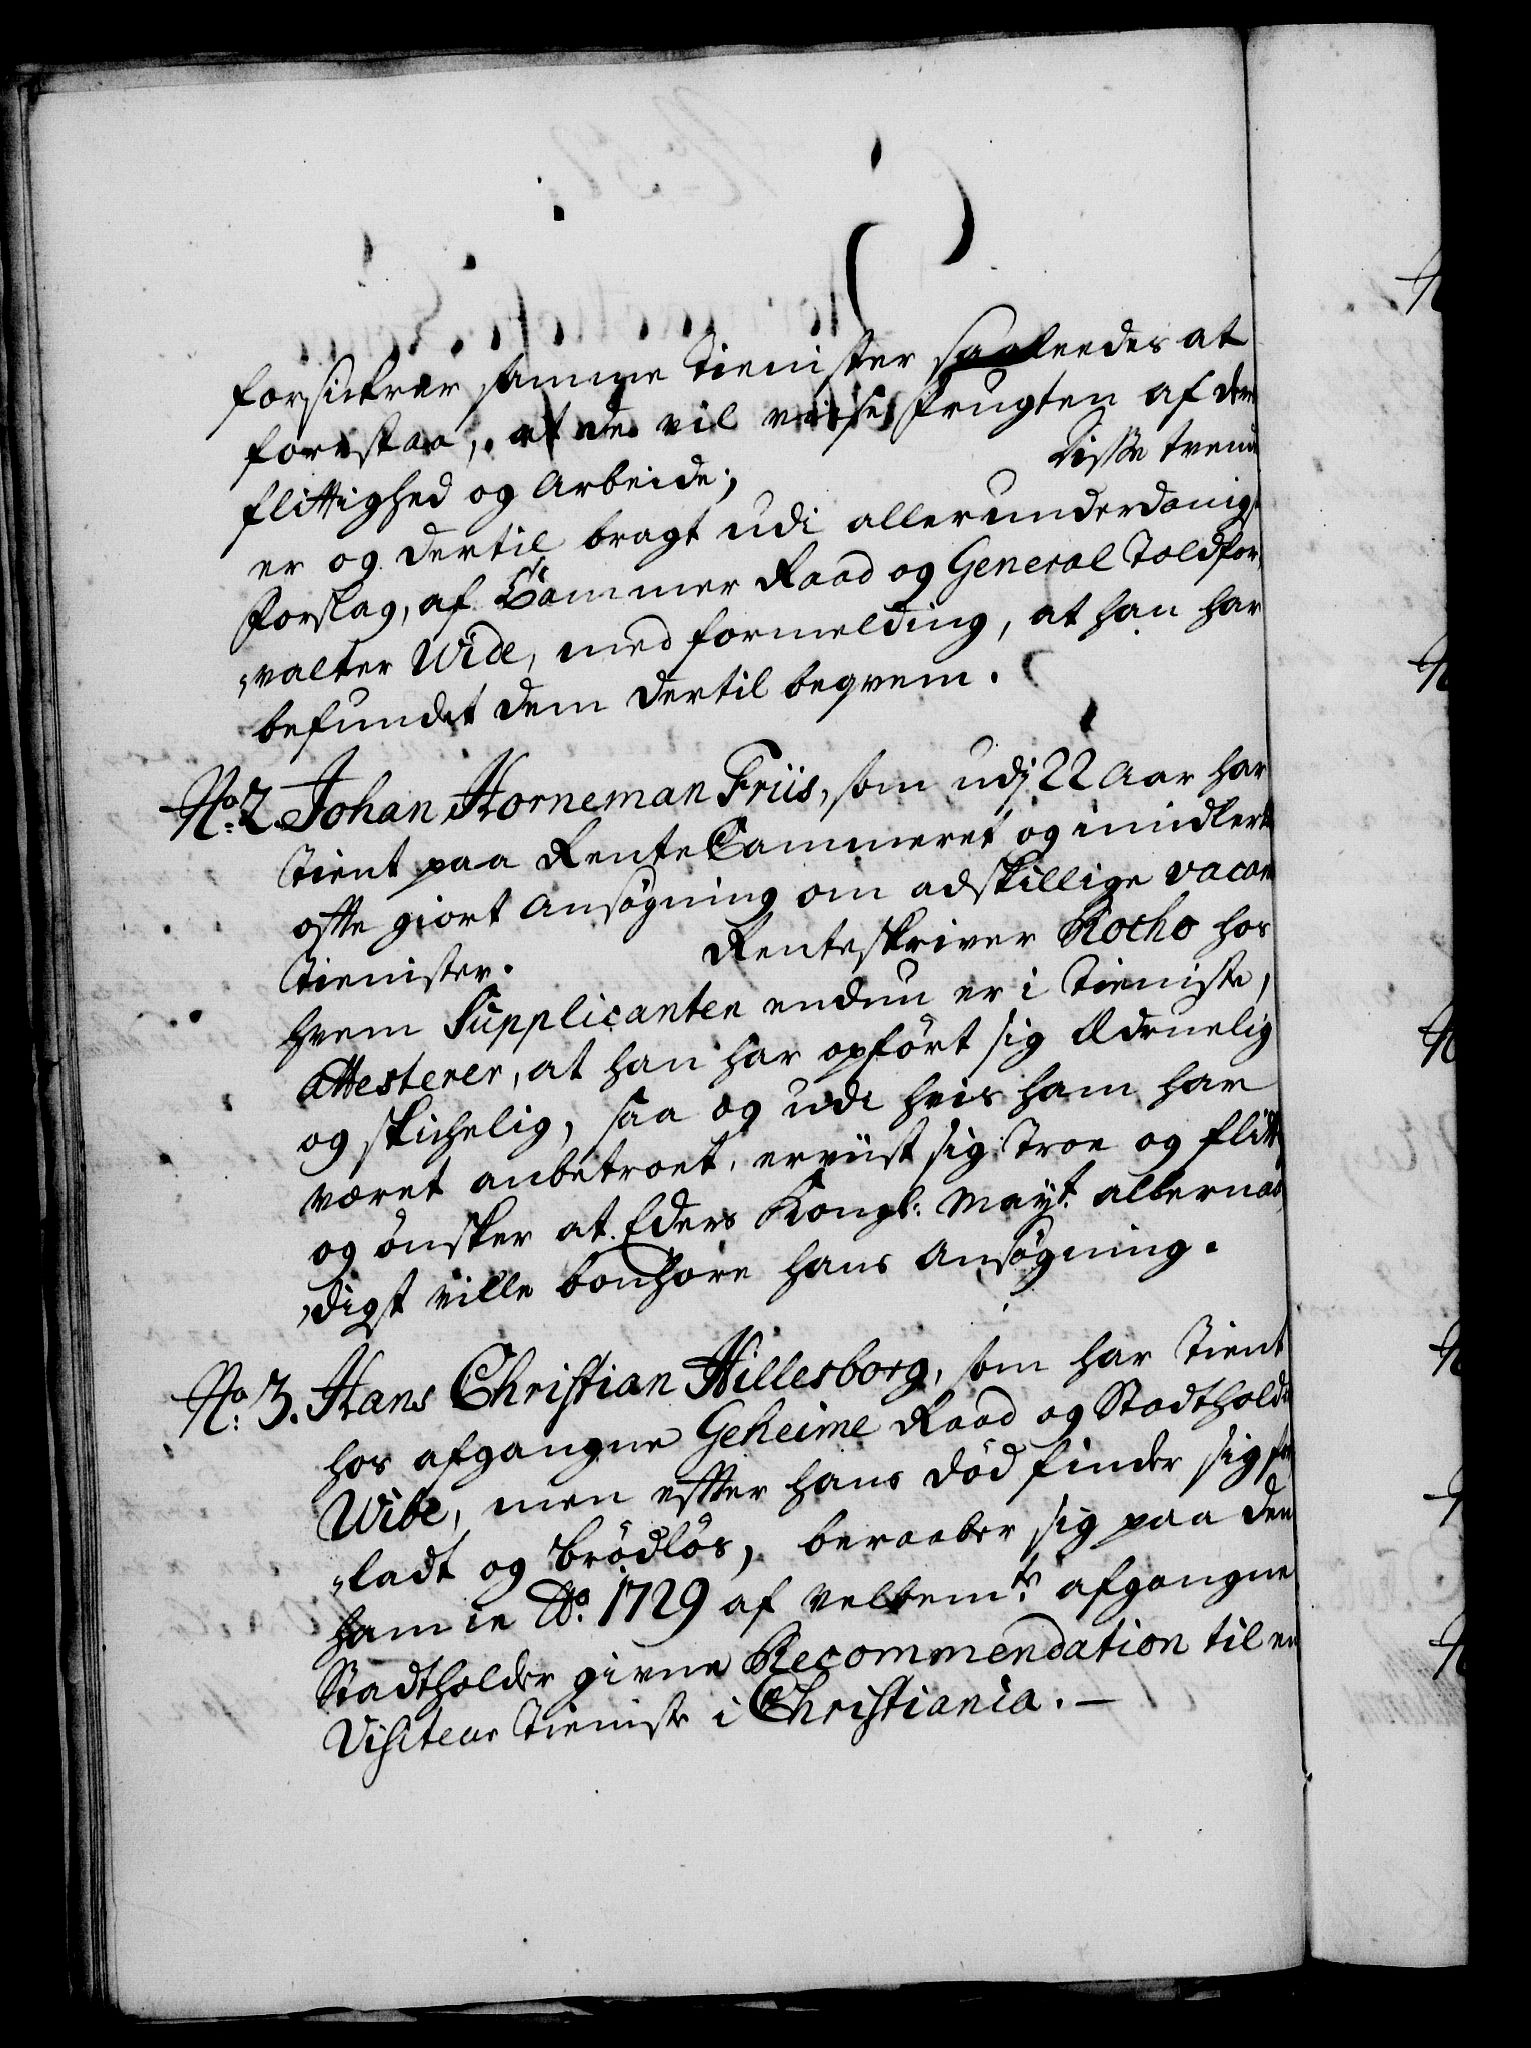 forsickrer samme Tienister saaleedes at
forestaa, at de vil viise Frugten af deres
flittighed og Arbeide; Disse trende
er og dertil bragt udi allerunderdanigst
Forslag, af Cammer Raad og General Toldfor„
„valter Wide, med formelding, at han har
befundet dem dertil beqvem.
No: 2. Johan Horneman Friis, som udj 22 Aar har
tient paa RenteCammeret og imidlertid
ofte giort Ansøgning om adskillige vacante
Tienister. Renteskriver Rocho hos
hvem Supplicanten endnu er i Tieniste,
attesterer, at han har opført sig Ædruelig
og skichelig, saa og udi hvis ham har
været anbetroet, erviist sig Troe og flittig
og ønsker at Eders Kongl: Mayt. allernaa„
„digst ville bønhøre hans Ansøgning.
No: 3. Hans Christian Hillesborg, som har tient
hos afgangne Geheime Raad og Stadtholder
Wibe, men efter hans død finder sig for„
„ladt og brødløs, beraaber sig paa den
ham in Ao. 1729 af velbemte. afgangne
Stadtholder givne Recommendation til en
Visiteur Tieniste i Christiania. —